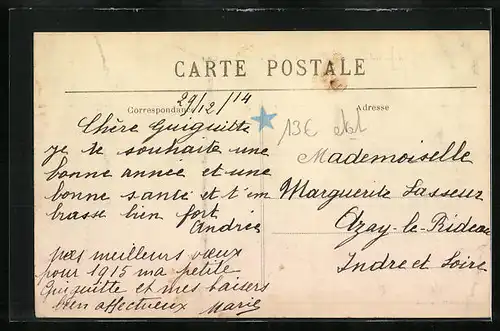 CARTE POSTALE
Correspondance
29/12/14
Chère Guiguitte
je te souhaite une
bonne année et une
bonne santé et t'em
brasse bien fort
Andrée
mes meilleurs vœux
pour 1915 ma petite
Guiguitte et mes baisers
bien affectueux Marie
Adresse
13€
Mademoiselle
Marguerite Lasseux
Azay-le-Rideau
Indre et Loire